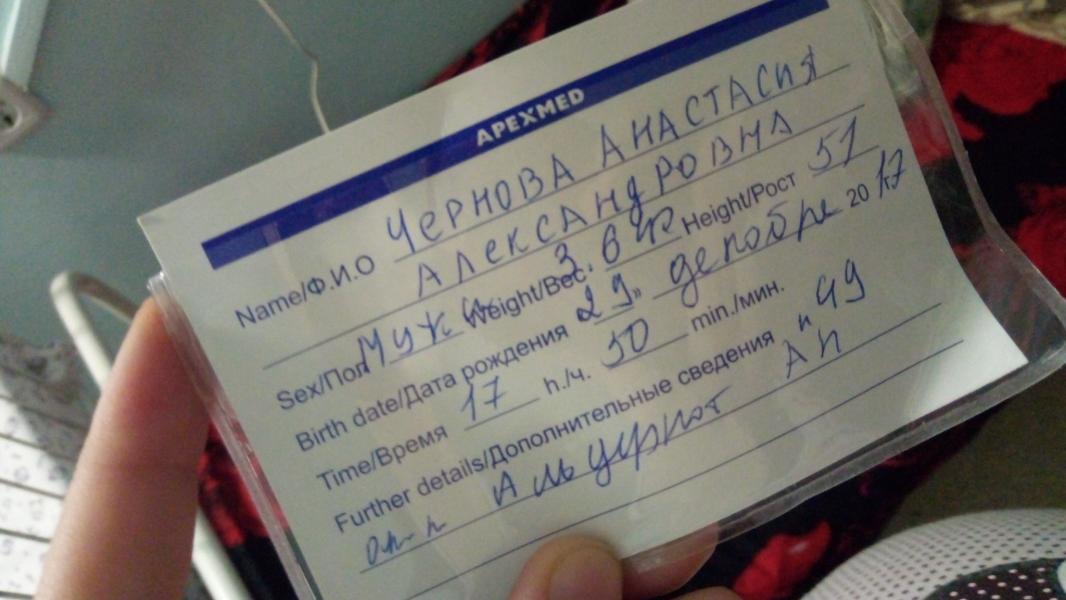 APEXMED
Name/Ф.И.О ЧЕРНОВА АНАСТАСИЯ
АЛЕКСАНДРОВНА
Sex/Пол Муж Weight/Вес. Height/Рост 51
Birth date/Дата рождения 29 декабря 2017
Time/Время 17 h./ч. 50 min./мин.
Further details/Дополнительные сведения н 49